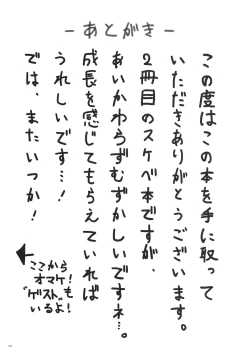 －あとがき－
この度はこの本を手に取って
いただきありがとうございます。
2冊目のスケベ本ですが、
あいかわらずむずかしいですネ…。
成長を感じてもらえていれば
うれしいです…！
では、またいつか！
ここから
オマケ！
ゲストも
いるよ！